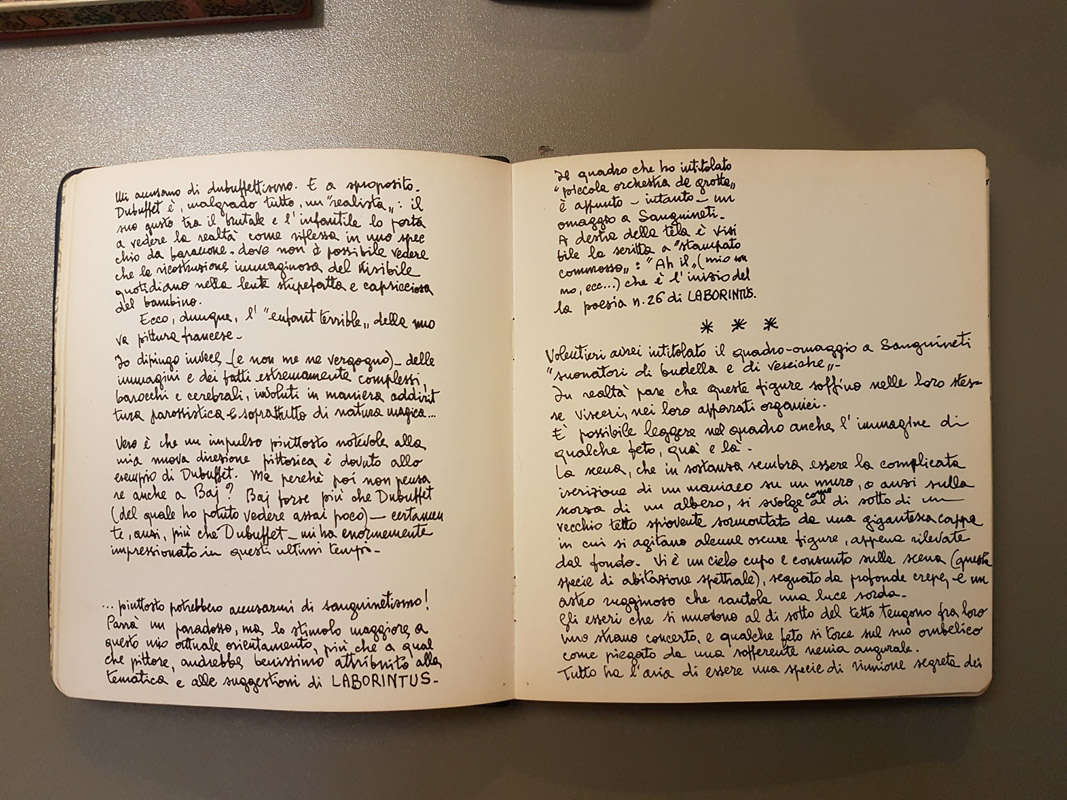 Mi accusano di dubuffettismo. E a sproposito.
Dubuffet è, malgrado tutto, un "realista„: il
suo gusto tra il brutale e l'infantile lo porta
a vedere la realtà come riflessa in uno spec
chio da baraccone. dove non è possibile vedere
che la ricostruzione immaginosa del visibile
quotidiano nella lente stupefatta e capricciosa
del bambino.
Ecco, dunque, l'"enfant terrible„ della nuo
va pittura francese.
Io dipingo invece (e non me ne vergogno) delle
immagini e dei fatti estremamente complessi,
barocchi e cerebrali, involuti in maniera addirit
tura parossistica e soprattutto di natura magica...
Vero è che un impulso piuttosto notevole alla
mia nuova direzione pittorica è dovuto allo
esempio di Dubuffet. Ma perché poi non pensa
re anche a Baj? Baj forse più che Dubuffet
(del quale ho potuto vedere assai poco) — certamen
te, anzi, più che Dubuffet — mi ha enormemente
impressionato in questi ultimi tempi.
... piuttosto potrebbero accusarmi di sanguinetismo!
Parrà un paradosso, ma lo stimolo maggiore a
questo mio attuale orientamento, più che a qual
che pittore, andrebbe benissimo attribuito alla
tematica e alle suggestioni di LABORINTUS.
Il quadro che ho intitolato
"piccola orchestra de grotta„
è appunto - intanto - un
omaggio a Sanguineti.
A destra della tela è visi
bile la scritta a "stampato
commosso„: "Ah il, (mio
mo, ecc...) che è l'inizio del
la poesia n. 26 di LABORINTUS.
* * *
Volentieri avrei intitolato il quadro-omaggio a Sanguineti
"suonatori di budella e di vesciche„.
In realtà pare che queste figure soffino nelle loro stes-
se visceri, nei loro apparati organici.
E' possibile leggere nel quadro anche l'immagine di
qualche feto, qua e là.
La scena, che in sostanza sembra essere la complicata
iscrizione di un maniaco su un muro, o anzi sulla
scorza di un albero, si svolge come al di sotto di un
vecchio tetto spiovente sormontato da una gigantesca cappa
in cui si agitano alcune oscure figure, appena rilevate
dal fondo. Vi è un cielo cupo e consunto sulla scena (questa
specie di abitazione spettrale), segnato da profonde crepe, e un
astro rugginoso che rantola una luce sorda.
Gli esseri che si muovono al di sotto del tetto tengono fra loro
uno strano concerto, e qualche feto si torce sul suo ombelico
come piegato da una sofferente nenia augurale.
Tutto ha l'aria di essere una specie di riunione segreta dei